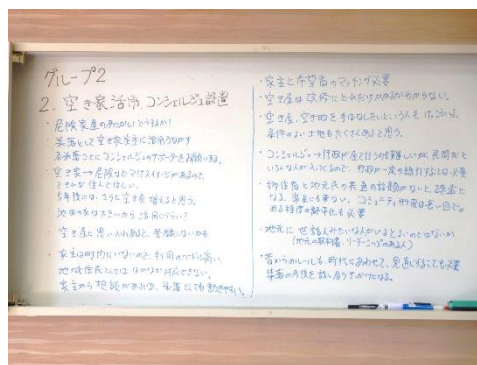 グループ2
2. 空き家活用、コンシェルジュ設置
・危険家屋のあつかいどうするか？
・集落として空き家家主に活用うながす
各集落ごとにコンシェルジュのサポーターをお願いする。
・空き家→危険などマイナスイメージがあるので、
できれば住んでほしい。
5年後には、さらに空き家増えると思う。
地域の家は大きいから活用しづらい？
・空き家に思い入れあると、登録しないかも
・家主は町内にいないので、利用のハードル高い。
地域住民としてはなかなか対応できない。
家主から相談があれば、集落としても動きやすい。
・家主と希望者のマッチング必要
・空き家は改修にどれだけかかるかわからない。
・空き家、空き地を手ばなしたいという人も、けっこういる。
条件のよい土地もたくさんあると思う。
・コンシェルジュ→行政が全て行うのも難しいが、民間だと
いろんな人が入ってくるので、行政が一定の線引きすることは必要
・移住者と地元民の普通の話題がないと、疎遠に
なる。当番にも来ない。コミュニティ形成は長い目で。
ある程度の都市化も必要
・地元に世話人みたいな人がいるとよいのではないか
(地元の教科書、リーダーシップのある人)
・昔からのルールも、時代にあわせて、見直しすることも必要
集落の今後を話し合うきっかけになる。